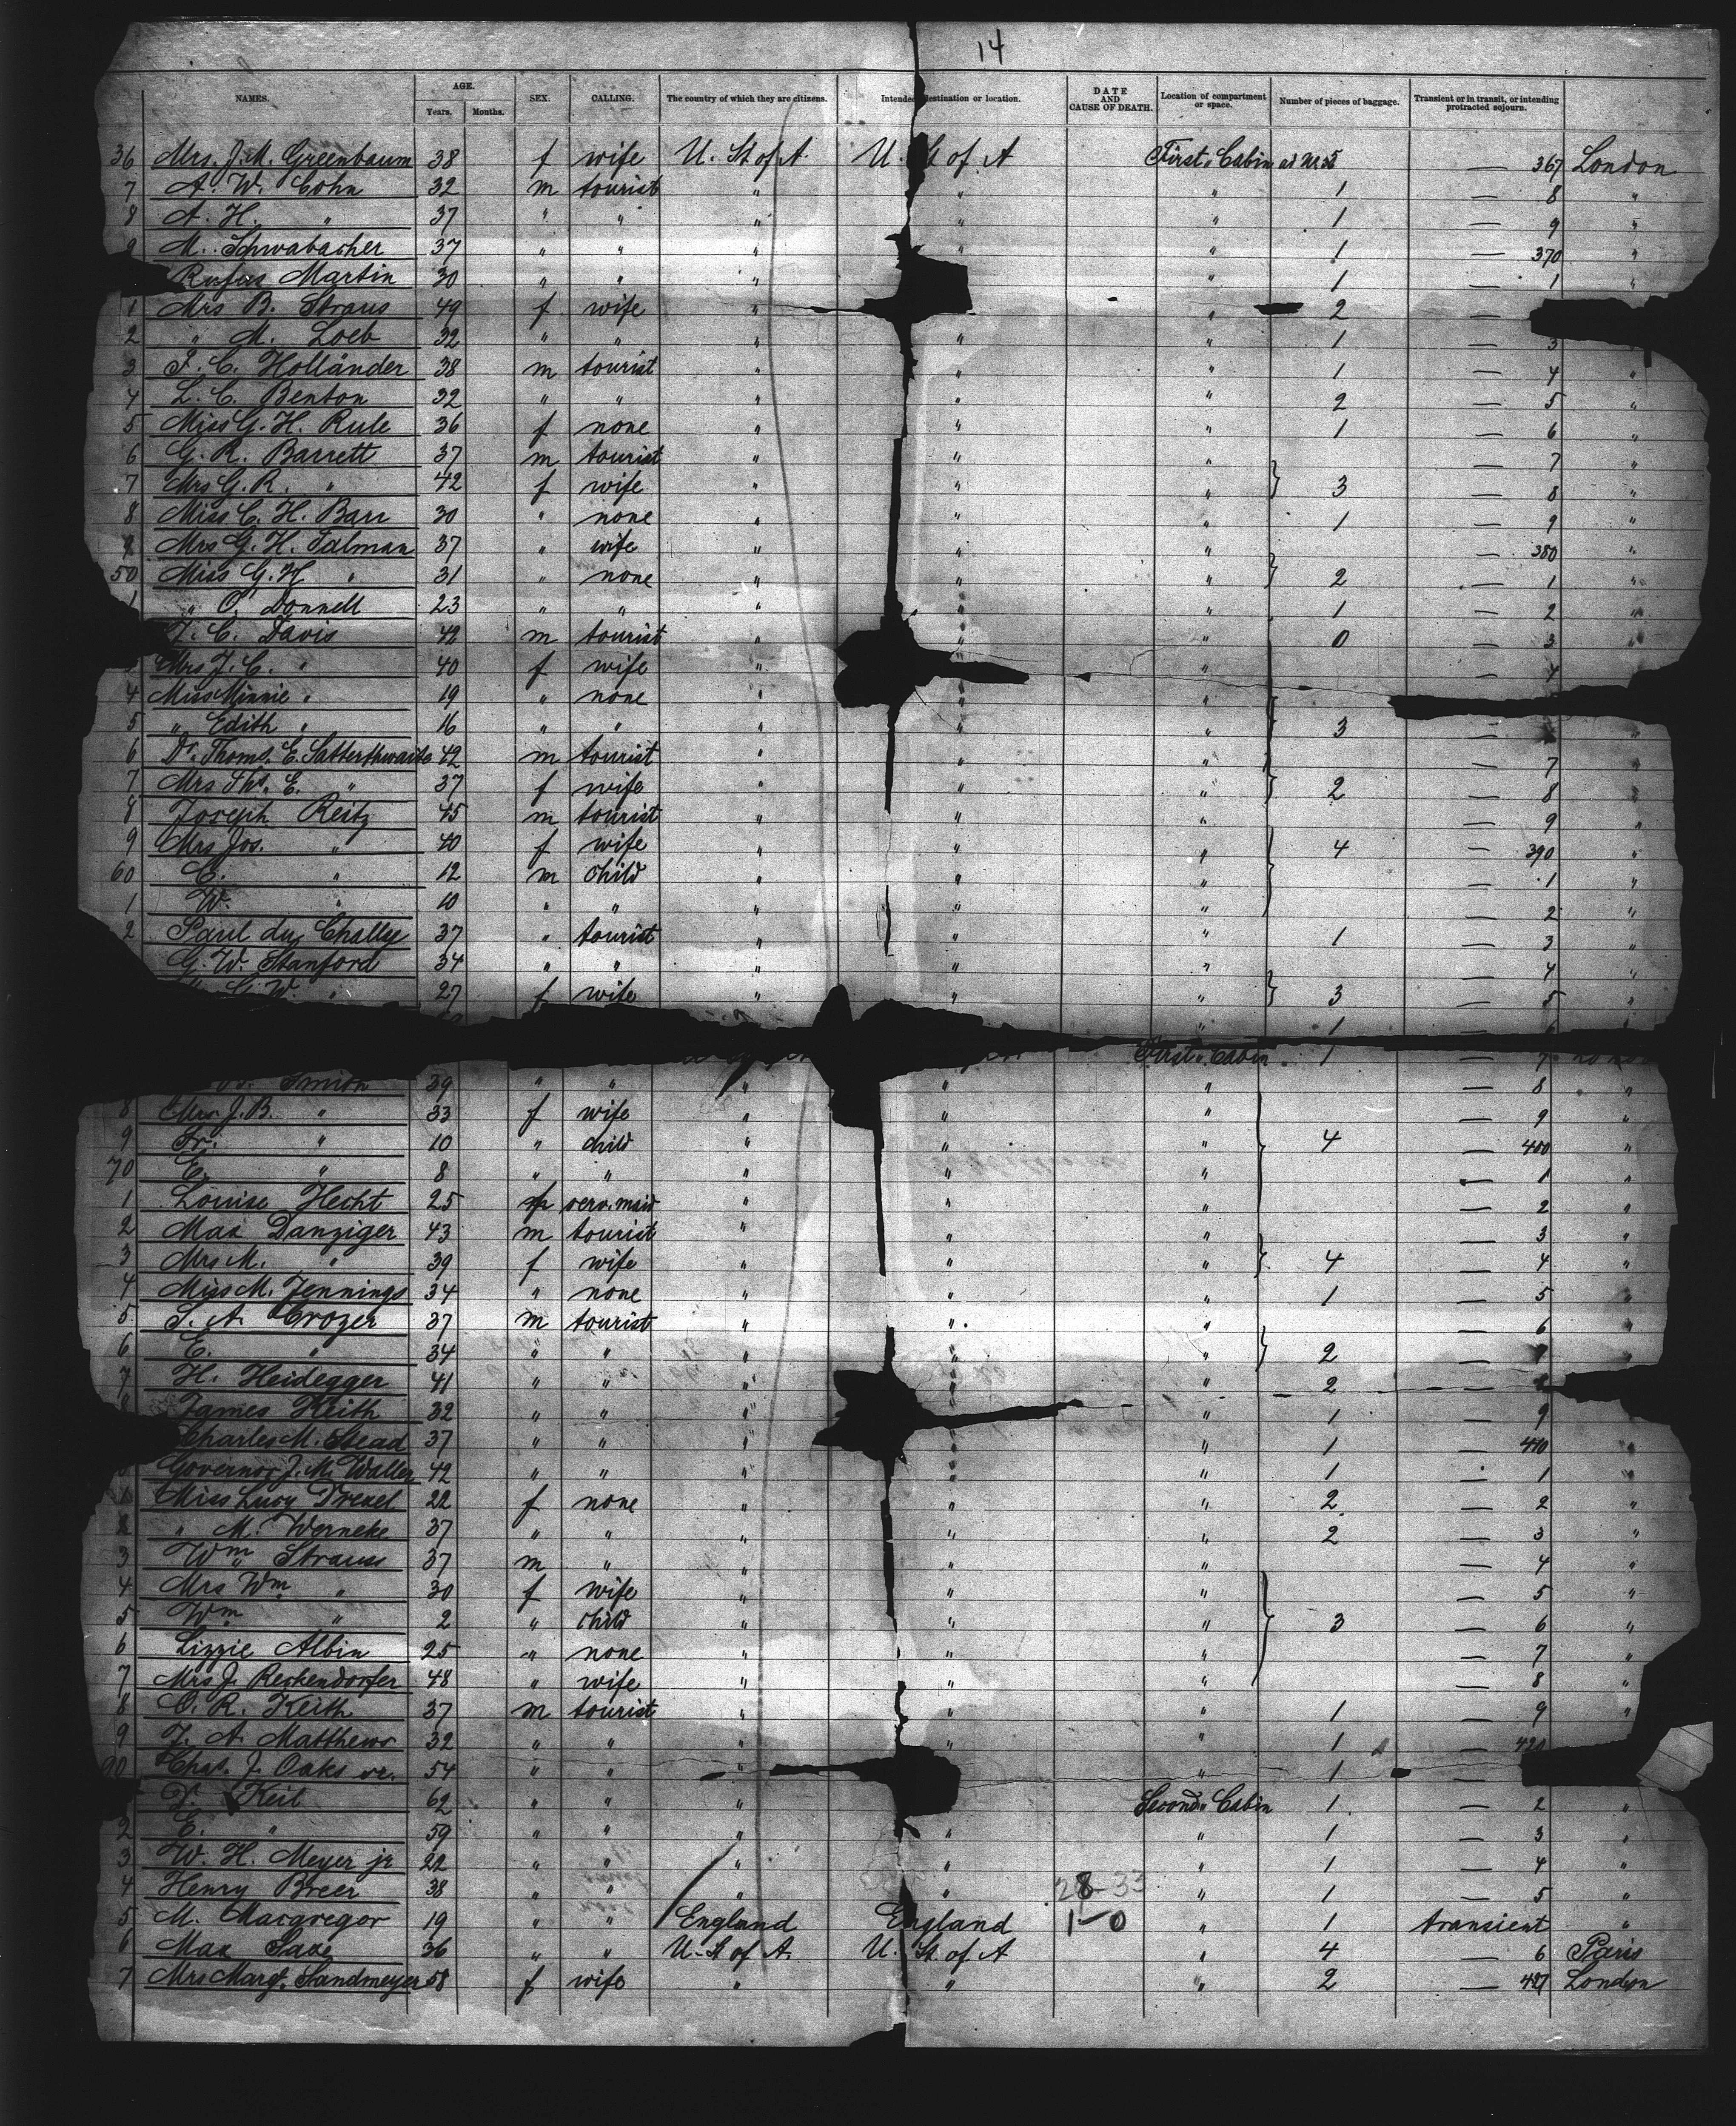 14
NAMES. AGE. Years. Months. SEX. CALLING. The country of which they are citizens. Intended destination or location. DATE AND CAUSE OF DEATH. Location of compartment or space. Number of pieces of baggage. Transient or in transit, or intending protracted sojourn.
36 Mrs. J. M. Greenbaum 38 f wife U. St of A. U. St of A First Cabin — 367 London
7 A. W. Cohn 32 m tourist " " " 1 — 8 "
8 A. H. " 37 " " " " " 1 — 9 "
9 M. Schwabacher 37 " " " " " 1 — 370 "
Rufus Martin 30 " " " " 1 — 1 "
1 Mrs B. Straus 49 f wife " " 2 —
2 " M. Loeb 32 " " " " " 1 — 3
3 F. C. Hollander 38 m tourist " " " 1 — 4 "
4 L. C. Benton 32 " " " " " 2 — 5 "
5 Miss G. H. Rule 36 f none " " " 1 — 6 "
6 G. R. Barrett 37 m tourist " " " — 7 "
7 Mrs G. R. " 42 f wife " " " } 3 — 8 "
8 Miss C. H. Barr 30 " none " " " 1 — 9 "
9 Mrs G. H. Talman 37 " wife " " " — 380 "
50 Miss G. H " 31 " none " " " } 2 — 1 "
1 " O. Donnell 23 " " " " " 1 — 2 "
J. C. Davis 42 m tourist " " " 0 — 3 "
Mrs J. C. " 40 f wife " " — 4
4 Miss Minnie " 19 " none " " "
5 " Edith " 16 " " " " " } 3 —
6 Dr. Thoms. E. Satterthwaite 42 m tourist " " " — 7 "
7 Mrs Ths. E. " 37 f wife " " " } 2 — 8 "
8 Joseph Reitz 45 m tourist " " " — 9 "
9 Mrs Jos. " 40 f wife " " " 4 — 390 "
60 C. " 12 m child " " " — 1 "
1 W. " 10 " " " " " — 2 "
2 Paul du Challye 37 " tourist " " " 1 — 3 "
G. W. Stanford 34 " " " " " — 4 "
G. W. " 27 f wife " " " } 3 — 5 "
1 — 6
First Cabin 1 — 7
Smith 39 " " " " " — 8 "
8 Mrs. J. B. " 33 f wife " " " — 9 "
9 Fr. " 10 " child " " " } 4 — 400 "
70 E. " 8 " " " " " — 1 "
1 Louise Hecht 25 f serv. maid " " " — 2 "
2 Max Danziger 43 m tourist " " " — 3 "
3 Mrs M. " 39 f wife " " " } 4 — 4 "
4 Miss M. Jennings 34 " none " " " 1 — 5 "
5 S. A. Crozer 37 m tourist " " " — 6 "
6 E. " 34 " " " " " } 2 — 7 "
7 H. Heidegger 41 " " " " " 2 —
8 James Keith 32 " " " " " 1 — 9 "
Charles M. Stead 37 " " " " " 1 — 410 "
Governor J. M. Waller 42 " " " " " 1 — 1 "
1 Miss Lucy Drexel 22 f none " " " 2 — 2 "
2 " M. Werneke 37 " " " " " 2 — 3 "
3 Wm Strauss 37 m " " " " — 4 "
4 Mrs Wm " 30 f wife " " " — 5 "
5 Wm " 2 " child " " " } 3 — 6 "
6 Lizzie Albin 25 " none " " " — 7 "
7 Mrs J. Reckendorfer 48 " wife " " " — 8 "
8 O. R. Keith 37 m tourist " " " 1 — 9 "
9 J. A. Matthews 32 " " " " " 1 — 420
90 Chas. J. Oaks sr. 54 " " " " 1 —
Keil 62 " " " Second Cabin 1 — 2 "
2 E. " 59 " " " " " 1 — 3 "
3 W. H. Meyer jr 22 " " " " " 1 — 4 "
4 Henry Breer 38 " " " " 28-33 " 1 — 5 "
5 M. Macgregor 19 " " England England 1-0 " 1 transient "
6 Max Saxe 36 " " U. St of A. U. St. of A " 4 — 6 Paris
7 Mrs Margt. Sandmeyer 58 f wife " " " 2 — 427 London